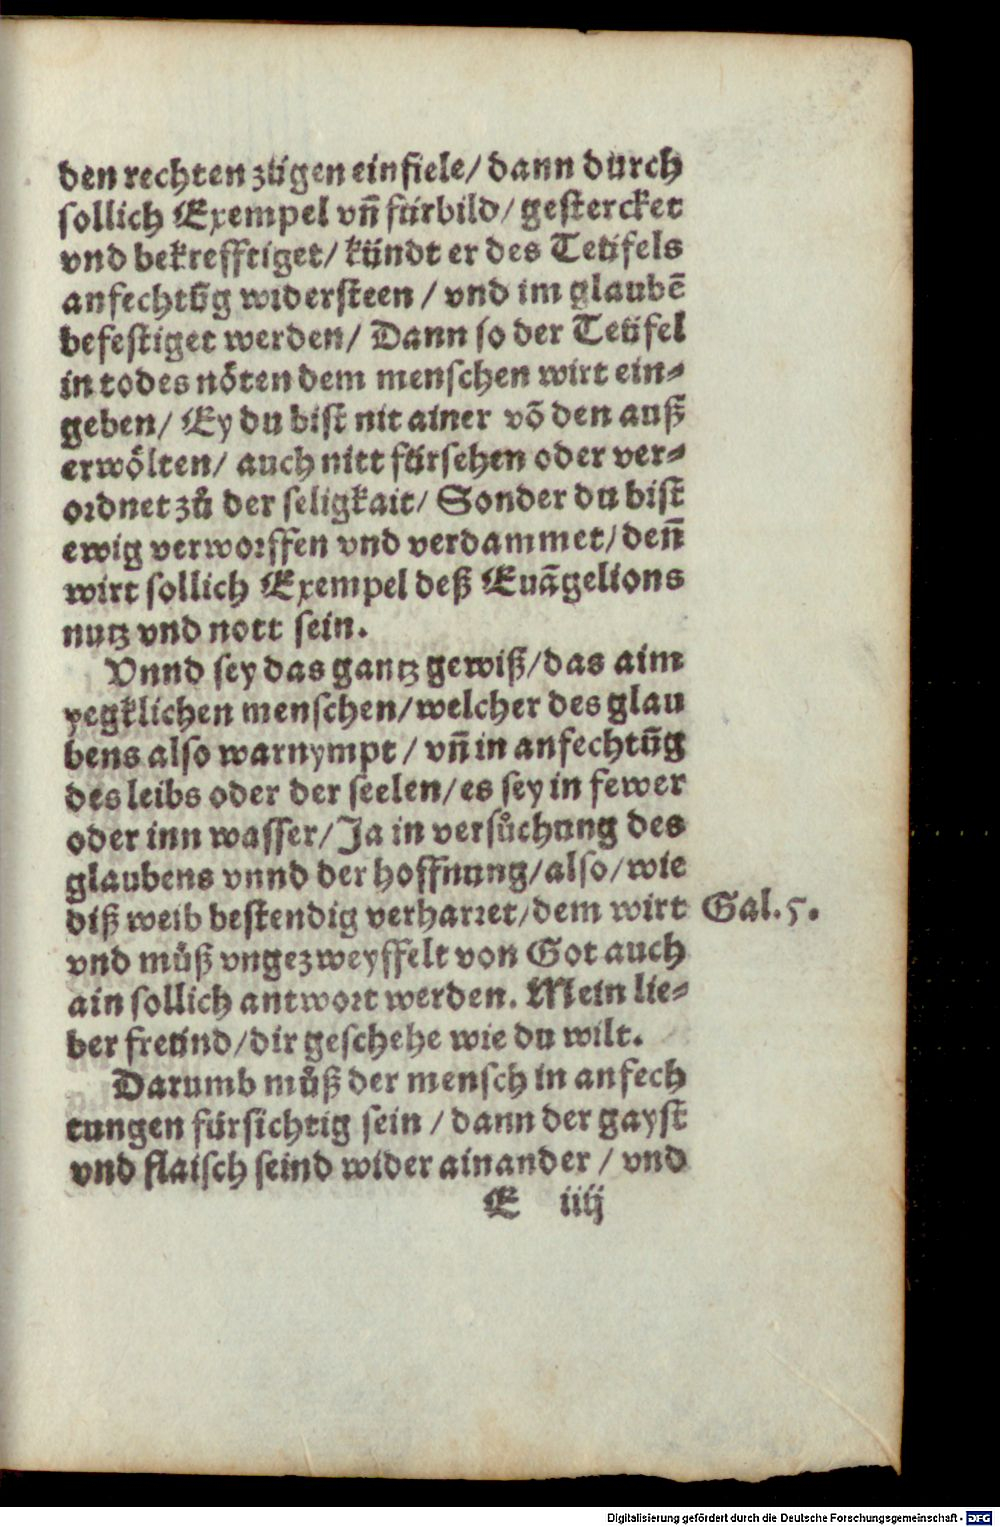 den rechten zügen einfiele/ dann durch
sollich Exempel vñ fürbild/ gestercket
vnd bekrefftiget/ kündt er des Teüfels
anfechtũg widersteen / vnd im glaubẽ
befestiget werden/ Dann so der Teüfel
in todes nöten dem menschen wirt ein⸗
geben/ Ey du bist nit ainer võ den auß
erwölten/ auch nitt fürsehen oder ver⸗
ordnet zů der seligkait/ Sonder du bist
ewig verworffen vnd verdammet/ deñ
wirt sollich Exempel deß Euãgelions
nutz vnd nott sein.
Vnnd sey das gantz gewiß/ das aim
yegklichen menschen/ welcher des glau
bens also warnympt / vñ in anfechtũg
des leibs oder der seelen/ es sey in fewer
oder inn wasser/ Ja in versůchung des
glaubens vnnd der hoffnung/ also/ wie
diß weib bestendig verharret/ dem wirt
Gal. 5.
vnd můß vngezweyffelt von Got auch
ain sollich antwort werden. Mein lie⸗
ber freünd/ dir geschehe wie du wilt.
Darumb můß der mensch in anfech
tungen fürsichtig sein / dann der gayst
vnd flaisch seind wider ainander / vnd
E iiij
Digitalisierung gefördert durch die Deutsche Forschungsgemeinschaft - DFG